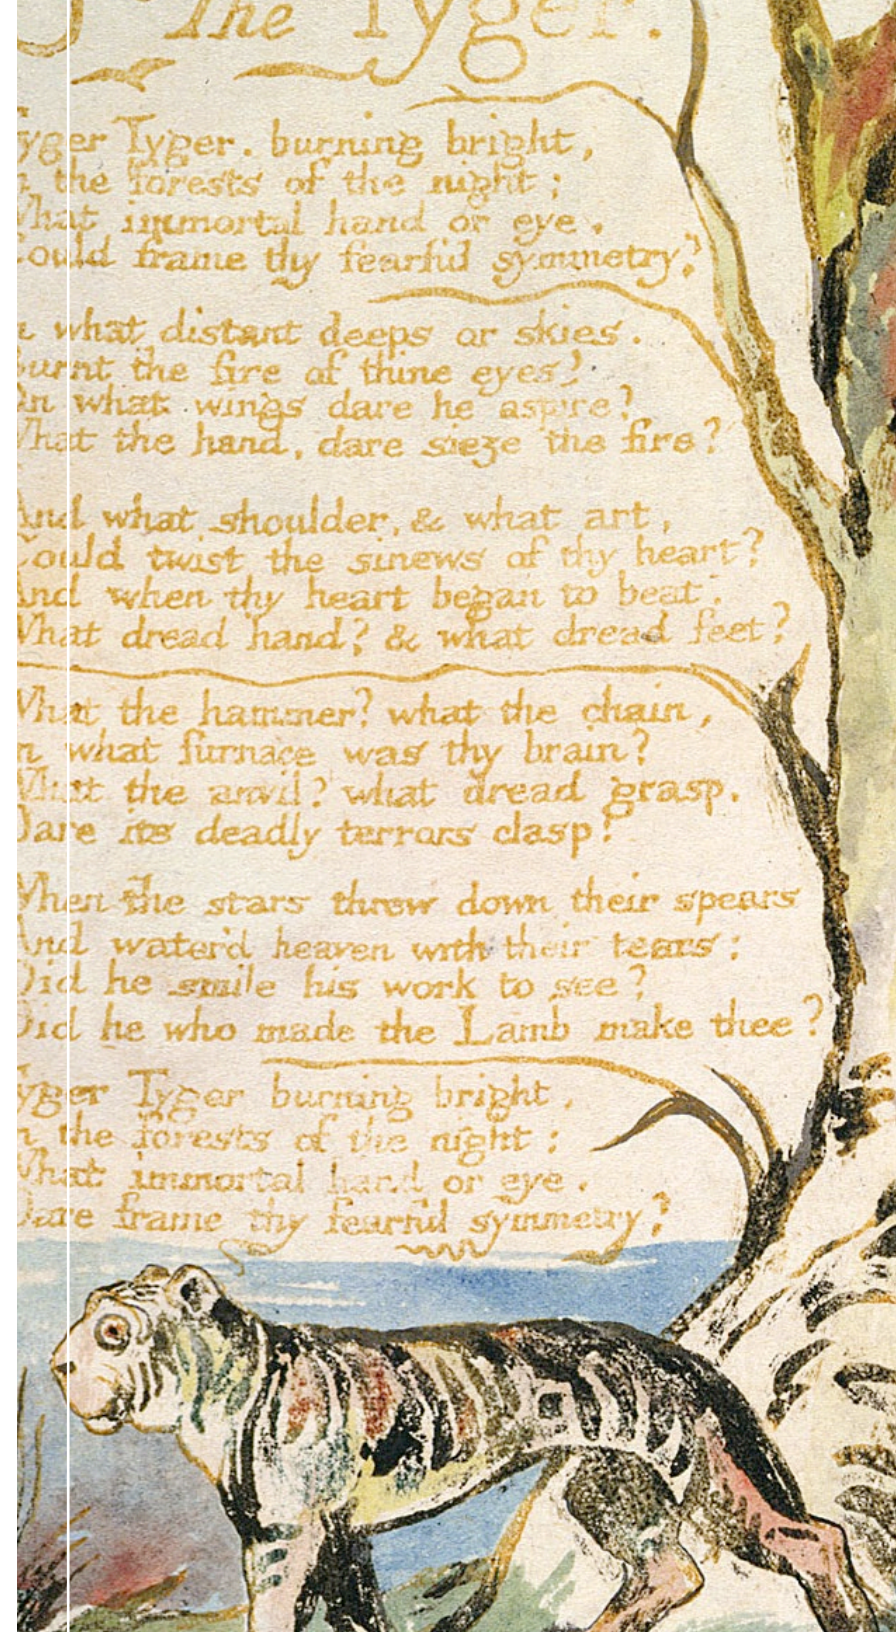 The Tyger.
yger Tyger. burning bright,
n the forests of the night;
What immortal hand or eye.
Could frame thy fearful symmetry?
n what distant deeps or skies.
Burnt the fire of thine eyes?
On what wings dare he aspire?
What the hand, dare sieze the fire?
And what shoulder, & what art,
Could twist the sinews of thy heart?
And when thy heart began to beat.
What dread hand? & what dread feet?
What the hammer? what the chain,
n what furnace was thy brain?
What the anvil? what dread grasp.
Dare its deadly terrors clasp?
When the stars threw down their spears
And water'd heaven with their tears:
Did he smile his work to see?
Did he who made the Lamb make thee?
yger Tyger burning bright.
n the forests of the night:
What immortal hand or eye.
Dare frame thy fearful symmetry?